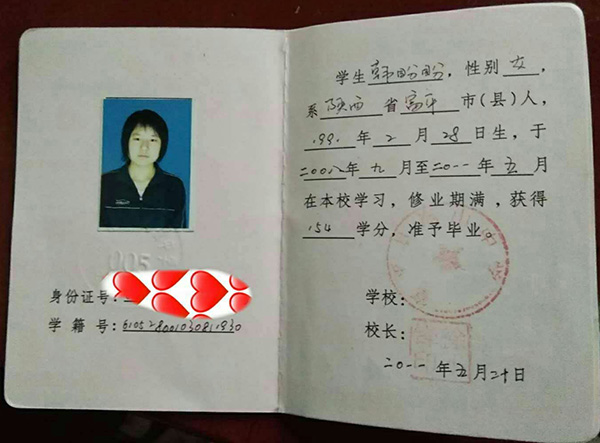 身份证号:
学籍号:610528001030811930
学生韩盼盼,性别女,
系陕西省富平市(县)人,
199 年2月28日生,于
二00八年九月至二0一一年五月
在本校学习,修业期满,获得
154学分,准予毕业。
学校:
校长:
二0一一年五月二十日